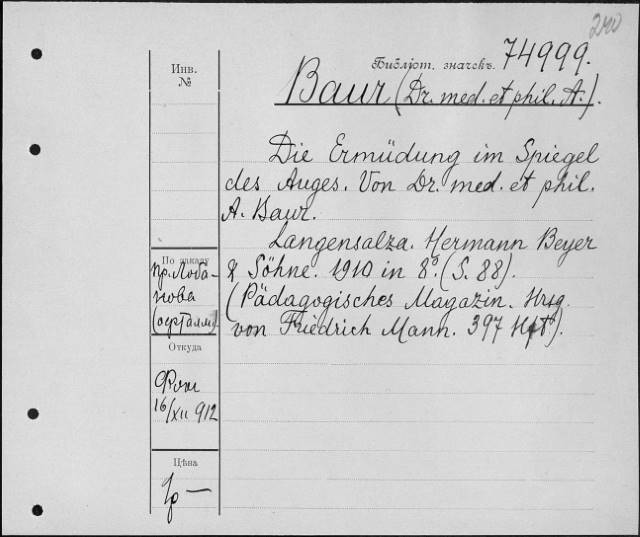 240
Инв.
№
Библіот. значекъ 74999.
Baur (Dr. med. et phil. A.).
Die Ermüdung im Spiegel
des Auges. Von Dr. med. et phil.
A. Baur.
Langensalza. Hermann Beyer
& Söhne. 1910 in 8º. (S. 88).
(Pädagogisches Magazin. Hrsg.
von Friedrich Mann. 397 Hft).
По заказу
пр. Лоба-
нова
Откуда
16/XII 912
Цѣна
1р —